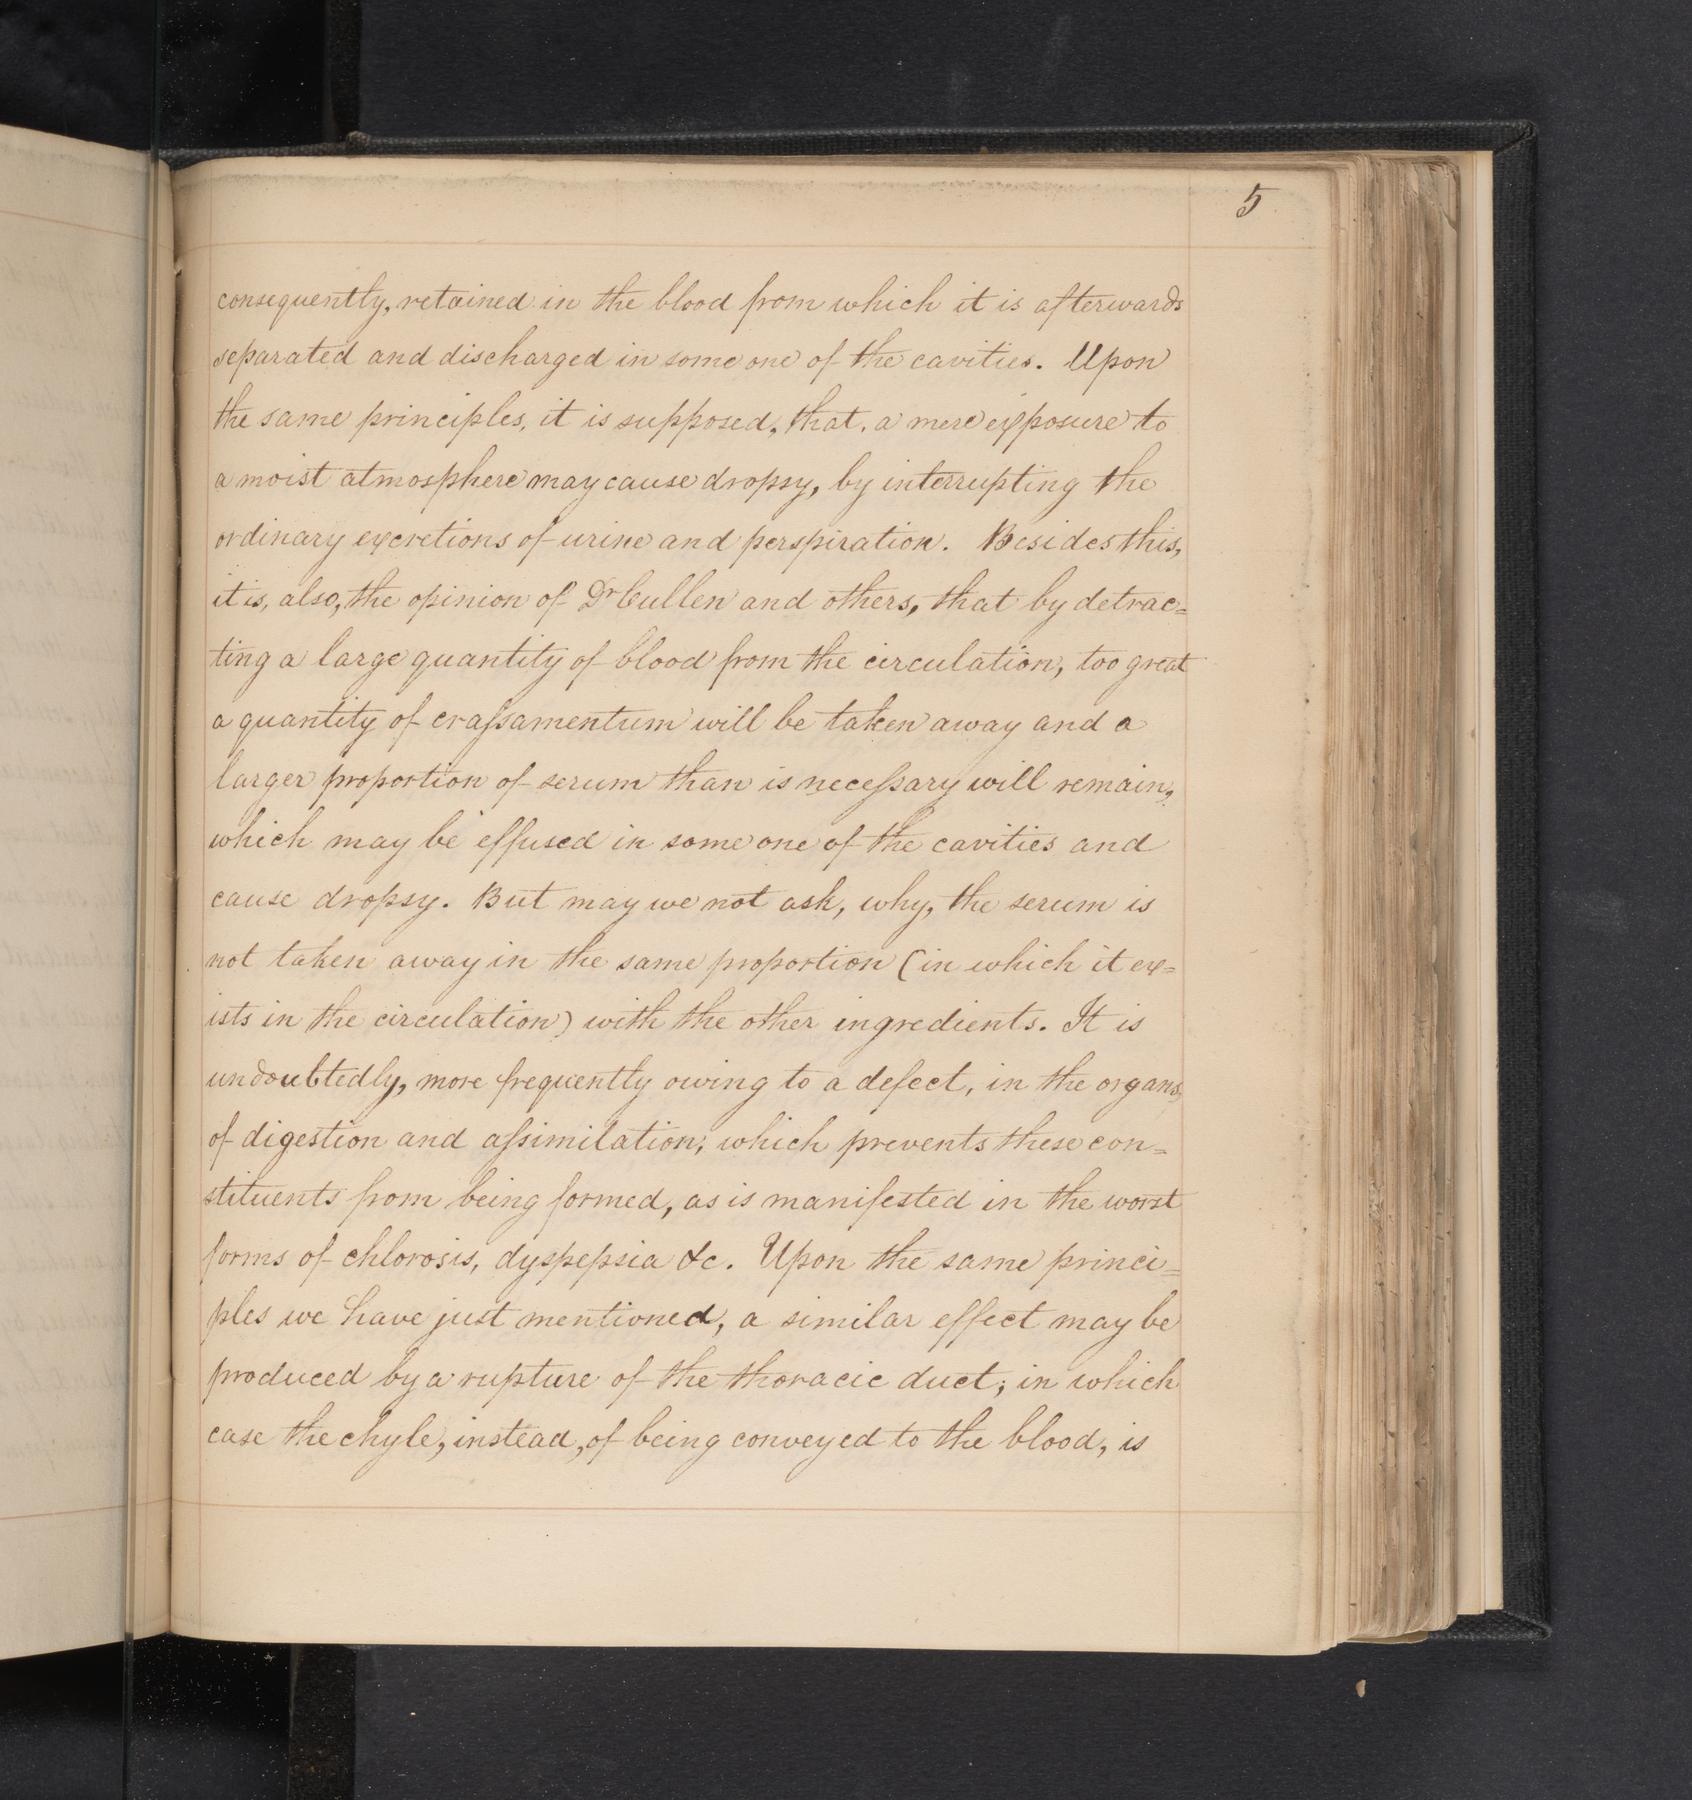 5
consequently, retained in the blood from which it is afterwards
separated and discharged in some one of the cavities. Upon
the same principles, it is supposed, that, a mere exposure to
a moist atmosphere may cause dropsy, by interrupting the
ordinary excretions of urine and perspiration. Besides this,
it is, also, the opinion of Dr Cullen and others, that by detrac=
ting a large quantity of blood from the circulation, too great
a quantity of craſsamentum will be taken away and a
larger proportion of serum than is neceſsary will remain,
which may be effused in some one of the cavities and
cause dropsy. But may we not ask, why, the serum is
not taken away in the same proportion (in which it ex=
ists in the circulation) with the other ingredients. It is
undoubtedly, more frequently owing to a defect, in the organs,
of digestion and aſsimilation, which prevents these con=
stituents from being formed, as is manifested in the worst
forms of chlorosis, dyspepsia &c. Upon the same princi=
ples we have just mentioned, a similar effect may be
produced by a rupture of the thoracic duct; in which
case the chyle, instead, of being conveyed to the blood, is